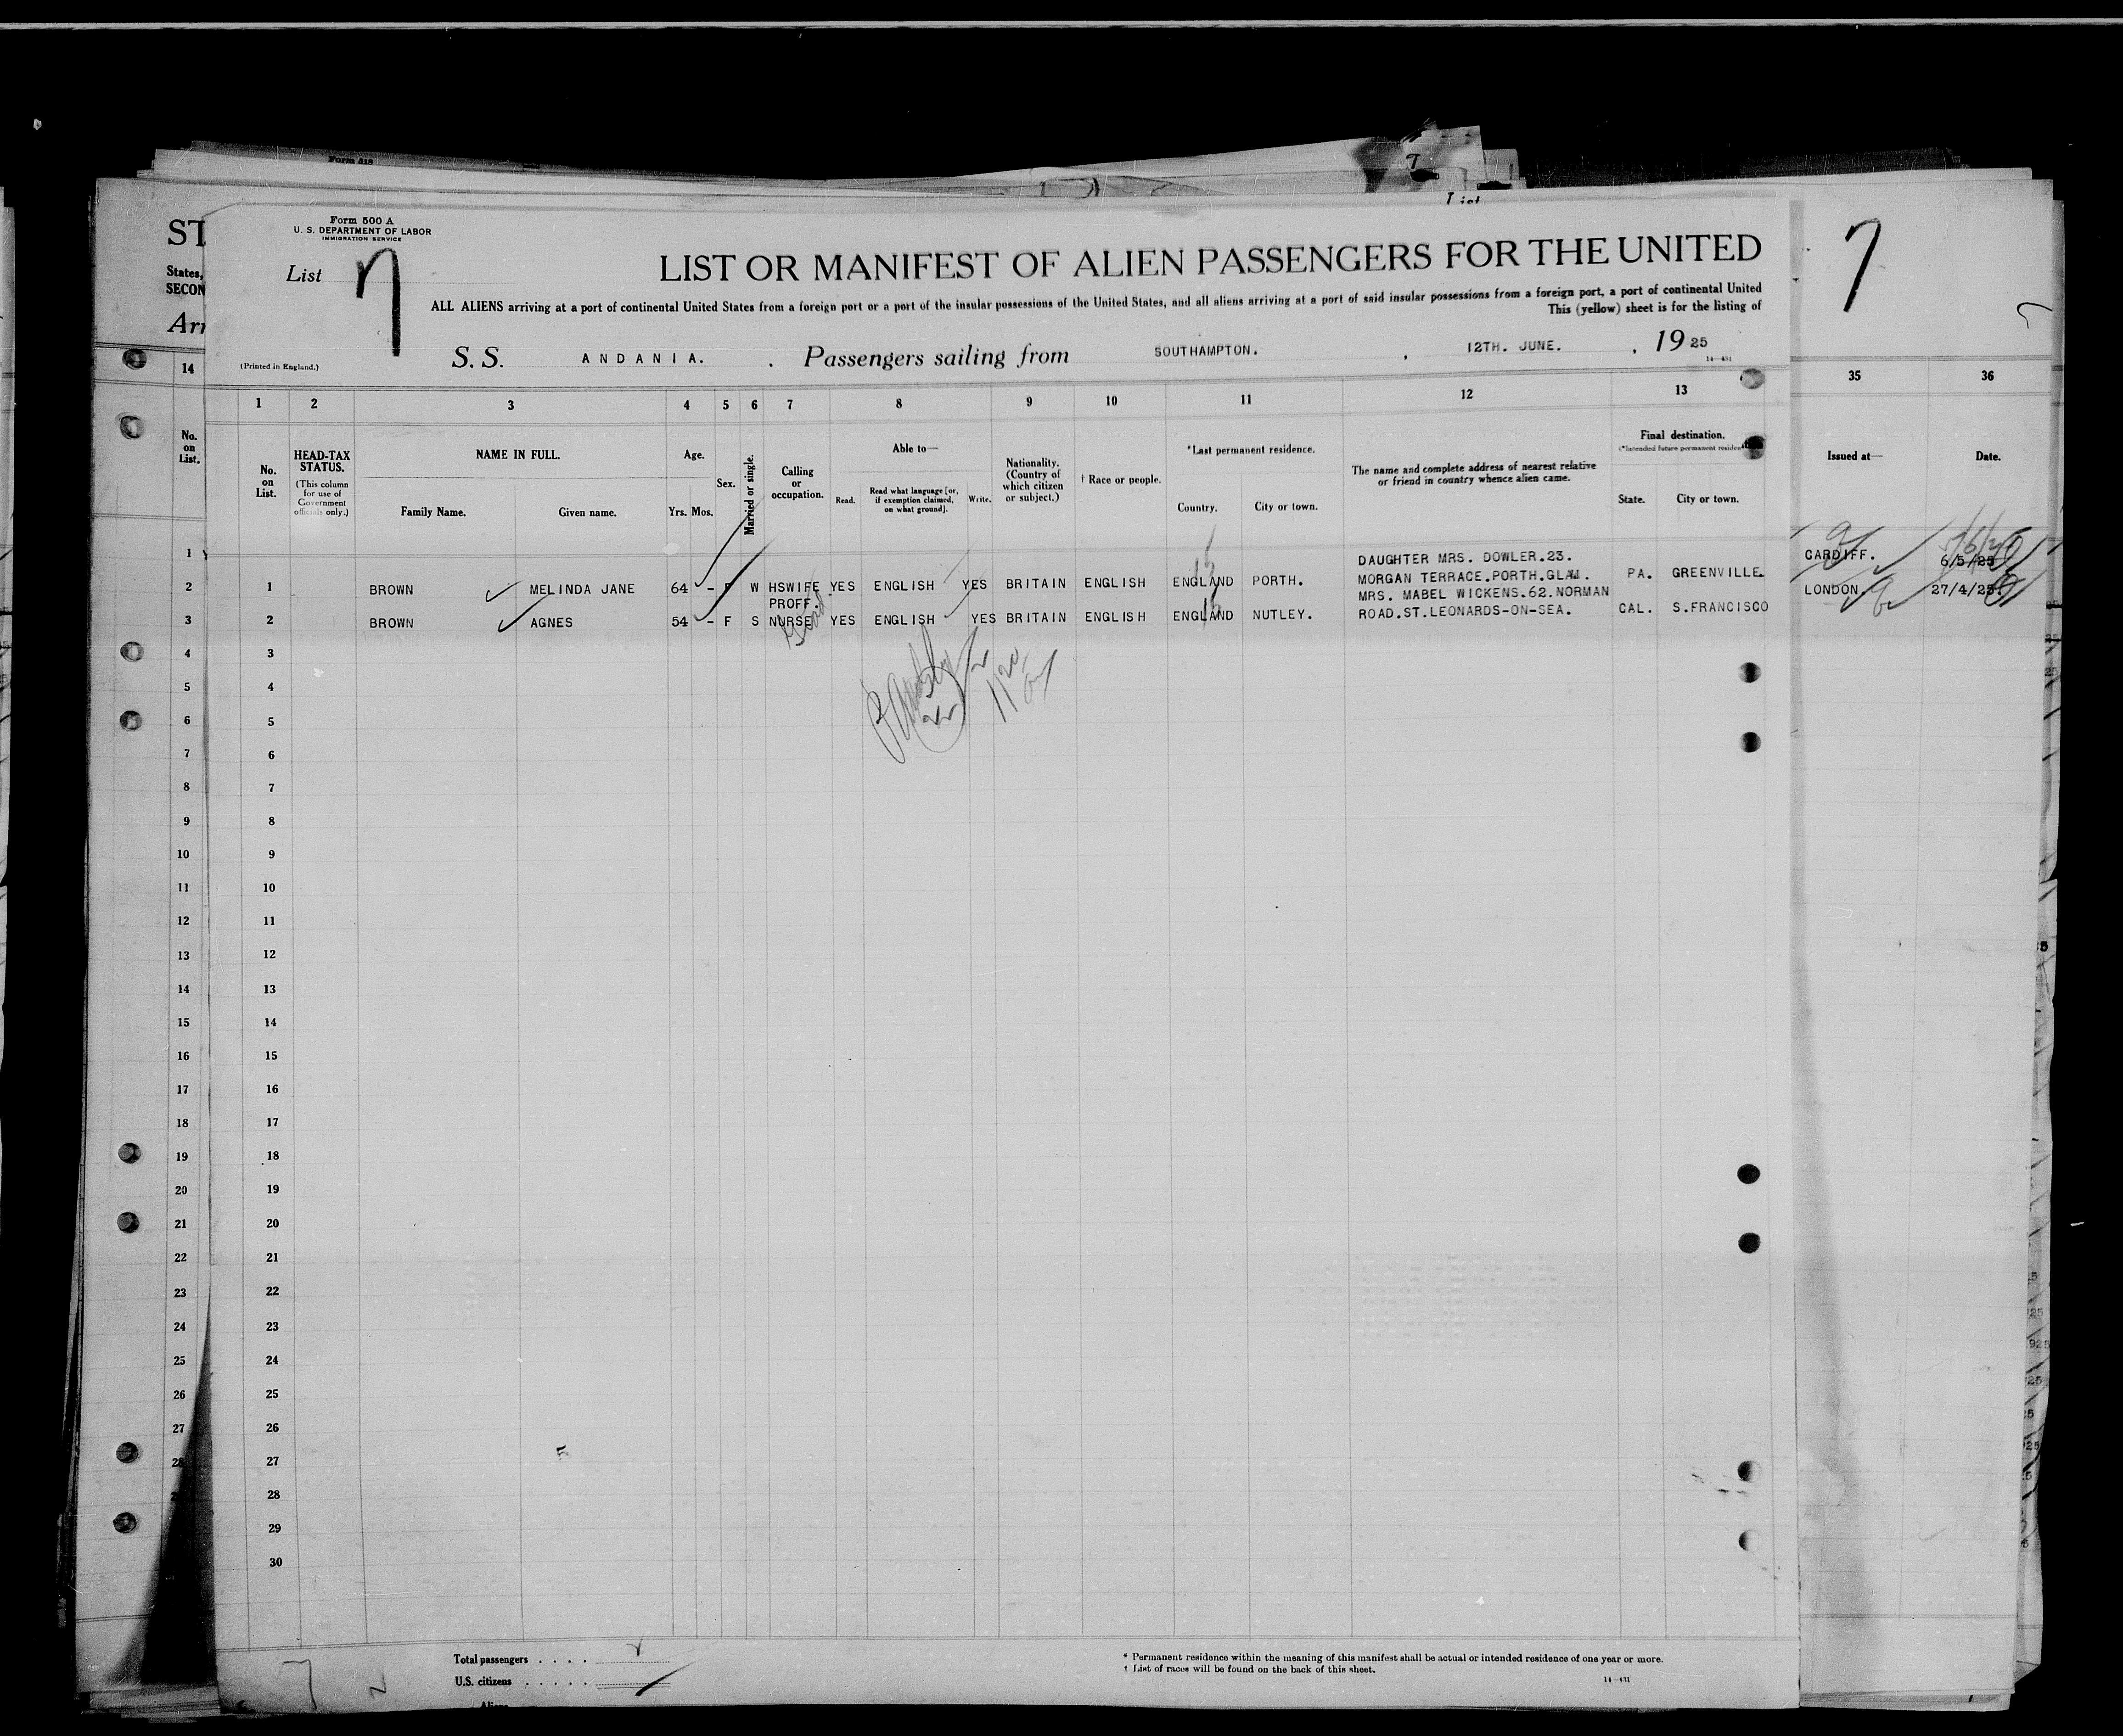 Form 418
List
ST
States,
SECON
Arr
14
No.
on
List.
Form 500 A
U. S. DEPARTMENT OF LABOR
IMMIGRATION SERVICE
List 7
LIST OR MANIFEST OF ALIEN PASSENGERS FOR THE UNITED
ALL ALIENS arriving at a port of continental United States from a foreign port or a port of the insular possessions of the United States, and all aliens arriving at a port of said insular possessions from a foreign port, a port of continental United
This (yellow) sheet is for the listing of
(Printed in England.) S. S. ANDANIA. , Passengers sailing from SOUTHAMPTON. , 12TH. JUNE. , 1925
14—431
7
1 2 3 4 5 6 7 8 9 10 11 12 13 35 36
No. on List.
HEAD-TAX STATUS.
(This column for use of Government officials only.)
NAME IN FULL.
Family Name. Given name.
Age.
Yrs. Mos.
Sex.
Married or single.
Calling or occupation.
Able to—
Read. Read what language [or, if exemption claimed, on what ground]. Write.
Nationality. (Country of which citizen or subject.)
† Race or people.
*Last permanent residence.
Country. City or town.
The name and complete address of nearest relative or friend in country whence alien came.
Final destination.
(*Intended future permanent residen
State. City or town.
Issued at— Date.
DAUGHTER MRS. DOWLER.23.
1 BROWN MELINDA JANE 64 - F W HSWIFE YES ENGLISH YES BRITAIN ENGLISH ENGLAND PORTH. MORGAN TERRACE.PORTH.GLAM. PA. GREENVILLE. CARDIFF. 6/5/25
PROFF. MRS. MABEL WICKENS.62.NORMAN
2 BROWN AGNES 54 - F S NURSE YES ENGLISH YES BRITAIN ENGLISH ENGLAND NUTLEY. ROAD.ST.LEONARDS-ON-SEA. CAL. S.FRANCISCO LONDON. 27/4/25
3
4
5
6
7
8
9
10
11
12
13
14
15
16
17
18
19
20
21
22
23
24
25
26
27
28
29
30
1
2
3
4
5
6
7
8
9
10
11
12
13
14
15
16
17
18
19
20
21
22
23
24
25
26
27
28
Total passengers
U.S. citizens
Aliens
* Permanent residence within the meaning of this manifest shall be actual or intended residence of one year or more.
† List of races will be found on the back of this sheet.
14—431